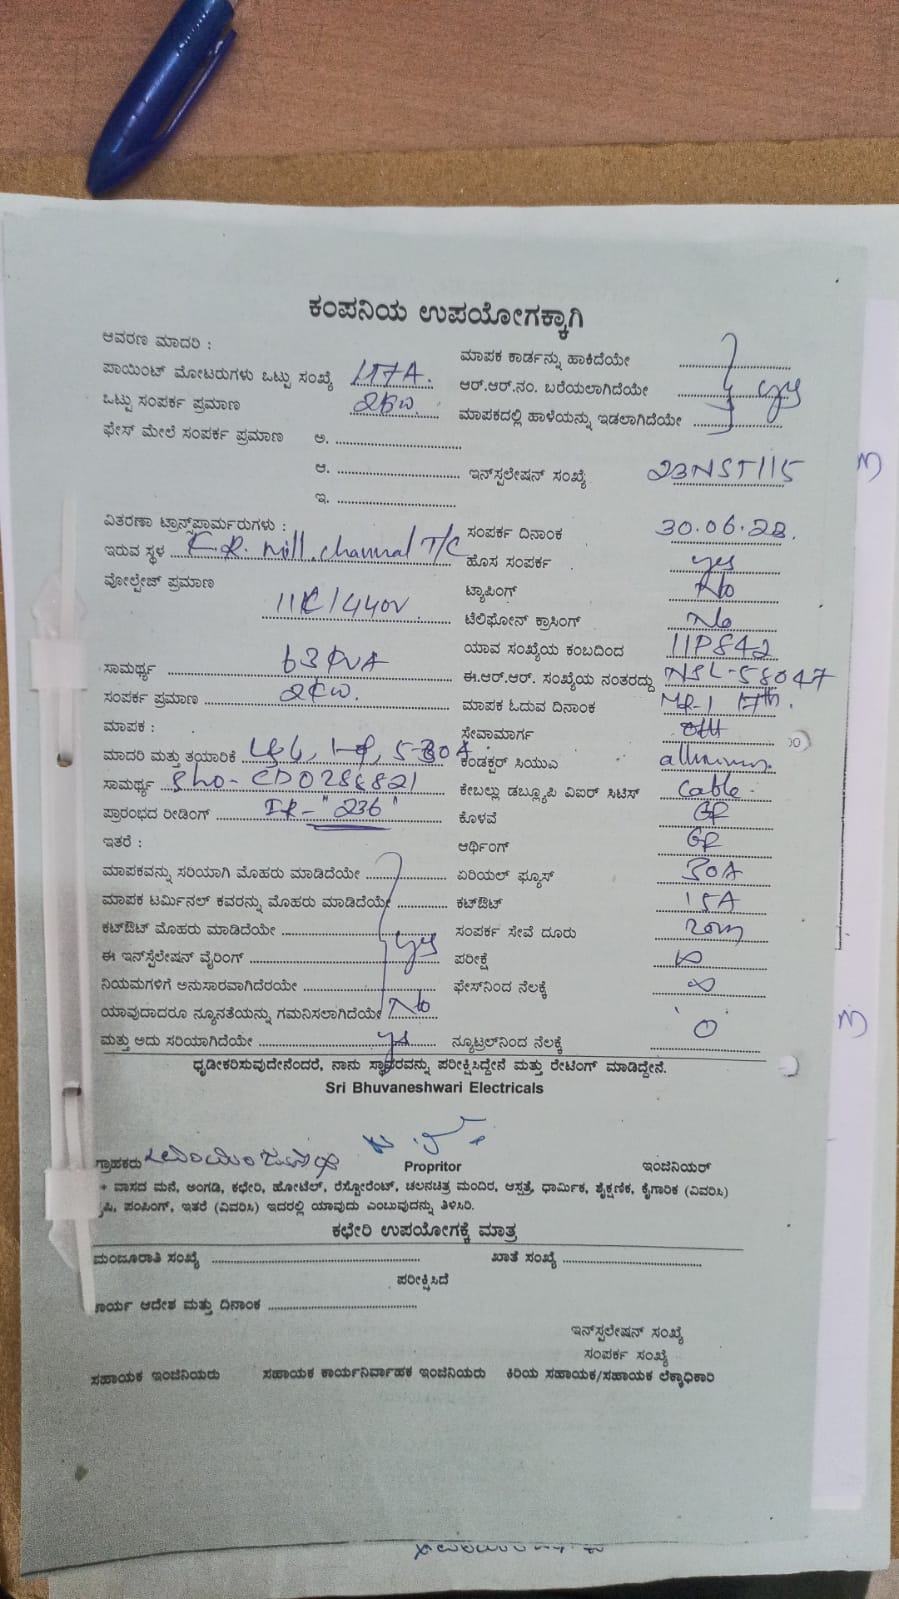 ಕಂಪನಿಯ ಉಪಯೋಗಕ್ಕಾಗಿ
ಆವರಣ ಮಾದರಿ :
ಮಾಪಕ ಕಾರ್ಡನ್ನು ಹಾಕಿದೆಯೇ
ಪಾಯಿಂಟ್ ಮೋಟರುಗಳು ಒಟ್ಟು ಸಂಖ್ಯೆ LT7A.
ಆರ್.ಆರ್.ನಂ. ಬರೆಯಲಾಗಿದೆಯೇ yes
ಒಟ್ಟು ಸಂಪರ್ಕ ಪ್ರಮಾಣ 2KW.
ಮಾಪಕದಲ್ಲಿ ಹಾಳೆಯನ್ನು ಇಡಲಾಗಿದೆಯೇ
ಫೇಸ್ ಮೇಲೆ ಸಂಪರ್ಕ ಪ್ರಮಾಣ ಅ.
ಆ.
ಇನ್‌ಸ್ಪಲೇಷನ್ ಸಂಖ್ಯೆ 23NST115
ಇ.
ವಿತರಣಾ ಟ್ರಾನ್ಸ್‌ಫಾರ್ಮರುಗಳು :
ಸಂಪರ್ಕ ದಿನಾಂಕ 30.06.23.
ಇರುವ ಸ್ಥಳ K.R. mill channal T/C
ಹೊಸ ಸಂಪರ್ಕ yes
ವೋಲ್ಟೇಜ್ ಪ್ರಮಾಣ 11K/440V
ಟ್ಯಾಪಿಂಗ್ No
ಟೆಲಿಫೋನ್ ಕ್ರಾಸಿಂಗ್ No
ಯಾವ ಸಂಖ್ಯೆಯ ಕಂಬದಿಂದ 11P842
ಸಾಮರ್ಥ್ಯ 63KVA
ಈ.ಆರ್.ಆರ್. ಸಂಖ್ಯೆಯ ನಂತರದ್ದು NSL-58047
ಸಂಪರ್ಕ ಪ್ರಮಾಣ 2KW.
ಮಾಪಕ ಓದುವ ದಿನಾಂಕ MR-1 17th.
ಮಾಪಕ :
ಸೇವಾಮಾರ್ಗ OH
ಮಾದರಿ ಮತ್ತು ತಯಾರಿಕೆ L&G, 1-φ, 5-30A.
ಕಂಡಕ್ಟರ್ ಸಿಯುಎ
ಸಾಮರ್ಥ್ಯ Sno-CD0286821
ಕೇಬಲ್ಲು ಡಬ್ಲ್ಯೂಪಿ ವಿಐರ್ ಸಿಟಿಸ್ Cable.
ಪ್ರಾರಂಭದ ರೀಡಿಂಗ್ IR-"236"
ಕೊಳವೆ GP
ಇತರೆ :
ಆರ್ಥಿಂಗ್ GP
ಮಾಪಕವನ್ನು ಸರಿಯಾಗಿ ಮೊಹರು ಮಾಡಿದೆಯೇ
ಏರಿಯಲ್ ಫ್ಯೂಸ್ 30A
ಮಾಪಕ ಟರ್ಮಿನಲ್ ಕವರನ್ನು ಮೊಹರು ಮಾಡಿದೆಯೇ
ಕಟ್‌ಔಟ್ 15A
ಕಟ್‌ಔಟ್ ಮೊಹರು ಮಾಡಿದೆಯೇ yes
ಸಂಪರ್ಕ ಸೇವೆ ದೂರು 20m
ಈ ಇನ್‌ಸ್ಟೆಲೇಷನ್ ವೈರಿಂಗ್
ಪರೀಕ್ಷೆ ∞
ನಿಯಮಗಳಿಗೆ ಅನುಸಾರವಾಗಿದೆರಯೇ
ಫೇಸ್‌ನಿಂದ ನೆಲಕ್ಕೆ ∞
ಯಾವುದಾದರೂ ನ್ಯೂನತೆಯನ್ನು ಗಮನಿಸಲಾಗಿದೆಯೇ No
ಮತ್ತು ಅದು ಸರಿಯಾಗಿದೆಯೇ yes
ನ್ಯೂಟ್ರಲ್‌ನಿಂದ ನೆಲಕ್ಕೆ '0'
ಧೃಡೀಕರಿಸುವುದೇನೆಂದರೆ, ನಾನು ಸ್ಥಾವರವನ್ನು ಪರೀಕ್ಷಿಸಿದ್ದೇನೆ ಮತ್ತು ರೇಟಿಂಗ್ ಮಾಡಿದ್ದೇನೆ.
Sri Bhuvaneshwari Electricals
ಗ್ರಾಹಕರು
Propritor
ಇಂಜಿನಿಯರ್
* ವಾಸದ ಮನೆ, ಅಂಗಡಿ, ಕಛೇರಿ, ಹೋಟೆಲ್, ರೆಸ್ಟೋರೆಂಟ್, ಚಲನಚಿತ್ರ ಮಂದಿರ, ಆಸ್ಪತ್ರೆ, ಧಾರ್ಮಿಕ, ಶೈಕ್ಷಣಿಕ, ಕೈಗಾರಿಕ (ವಿವರಿಸಿ)
ಪಂಪಿಂಗ್, ಇತರೆ (ವಿವರಿಸಿ) ಇದರಲ್ಲಿ ಯಾವುದು ಎಂಬುವುದನ್ನು ತಿಳಿಸಿರಿ.
ಕಛೇರಿ ಉಪಯೋಗಕ್ಕೆ ಮಾತ್ರ
ಮಂಜೂರಾತಿ ಸಂಖ್ಯೆ
ಖಾತೆ ಸಂಖ್ಯೆ
ಪರೀಕ್ಷಿಸಿದೆ
ಕಾರ್ಯ ಆದೇಶ ಮತ್ತು ದಿನಾಂಕ
ಇನ್‌ಸ್ಪಲೇಷನ್ ಸಂಖ್ಯೆ
ಸಂಪರ್ಕ ಸಂಖ್ಯೆ
ಸಹಾಯಕ ಇಂಜಿನಿಯರು ಸಹಾಯಕ ಕಾರ್ಯನಿರ್ವಾಹಕ ಇಂಜಿನಿಯರು ಕಿರಿಯ ಸಹಾಯಕ/ಸಹಾಯಕ ಲೆಕ್ಕಾಧಿಕಾರಿ